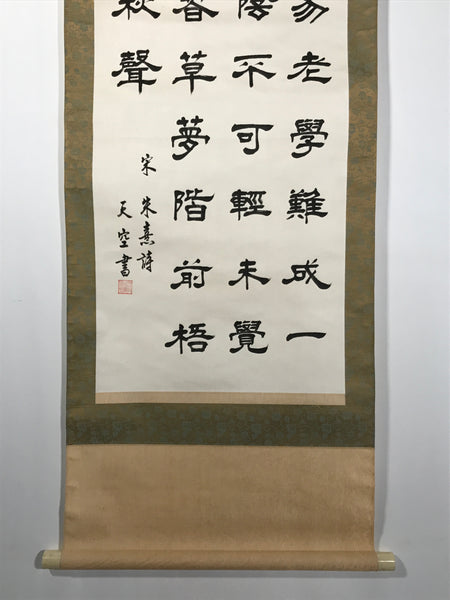 易老學難成一
陰不可輕未覺
草夢階前梧
秋聲
宋 朱熹詩
天空書